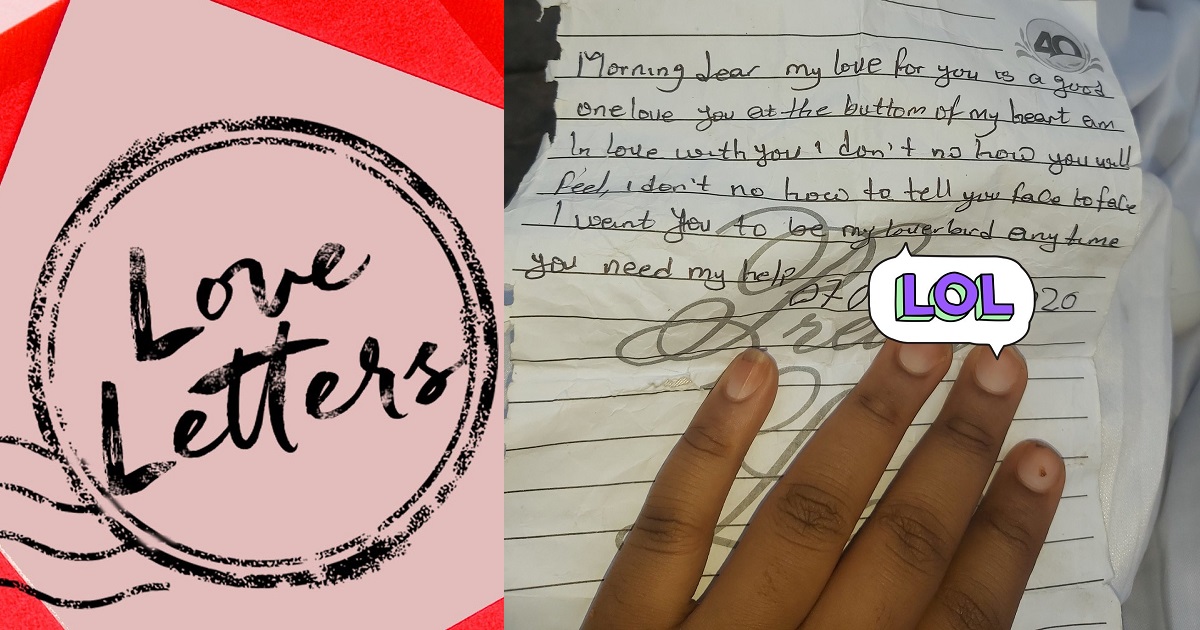 Love
Letters
40
Morning dear my love for you is a good
one love you at the buttom of my heart am
In love with you I don't no how you will
feel, I don't no how to tell you face to face
I want you to be my loverbird any time
you need my help
070
20
LOL